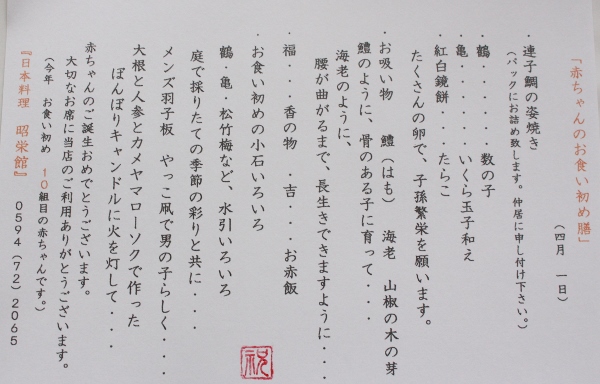 「赤ちゃんのお食い初め膳」
（四月 一日）
・連子鯛の姿焼き
（パックにお詰め致します。仲居に申し付け下さい。）
・鶴・・・・・・数の子
・亀・・・・・いくら玉子和え
・紅白鏡餅・・・たらこ
たくさんの卵で、子孫繁栄を願います。
・お吸い物 鱧（はも） 海老 山椒の木の芽
鱧のように、骨のある子に育って・・・
海老のように、
腰が曲がるまで、長生きできますように・・・・
・福・・・香の物 ・吉・・・お赤飯
・お食い初めの小石いろいろ
鶴・亀・松竹梅など、水引いろいろ
庭で採りたての季節の彩りと共に・・・
メンズ羽子板 やっこ凧で男の子らしく・・・・
大根と人参とカメヤマローソクで作った
ぼんぼりキャンドルに火を灯して・・・・
赤ちゃんのご誕生おめでとうございます。
大切なお席に当店のご利用ありがとうございます。
（今年 お食い初め １０組目の赤ちゃんです。）
『日本料理 昭栄館』 ０５９４（７２）２０６５
祝